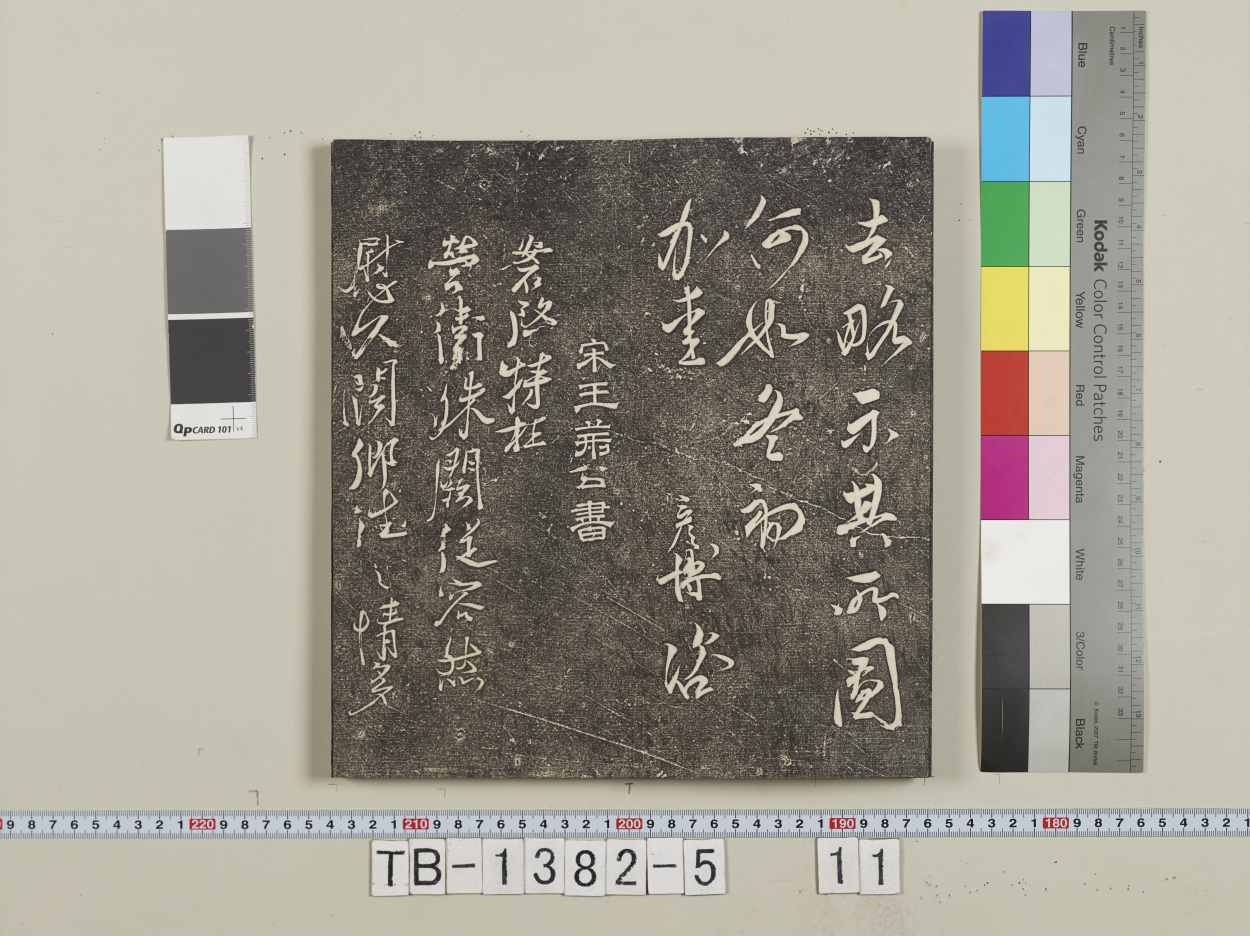 去略示其所圖
何如冬初
加重 彥博咨
宋王荊公書
安石啓特枉
營衛殊闕從容然
慰久闊鄉往之情矣
QPCARD 101 v4
Kodak Color Control Patches
Blue
Cyan
Green
Yellow
Red
Magenta
White
3/Color
Black
Inches
Centimetres
© Kodak, 2007 TM: Kodak
9 8 7 6 5 4 3 2 1 220 9 8 7 6 5 4 3 2 1 210 9 8 7 6 5 4 3 2 1 200 9 8 7 6 5 4 3 2 1 190 9 8 7 6 5 4 3 2 1 180 9 8 7 6 5 4 3 2 1
TB-1382-5 11